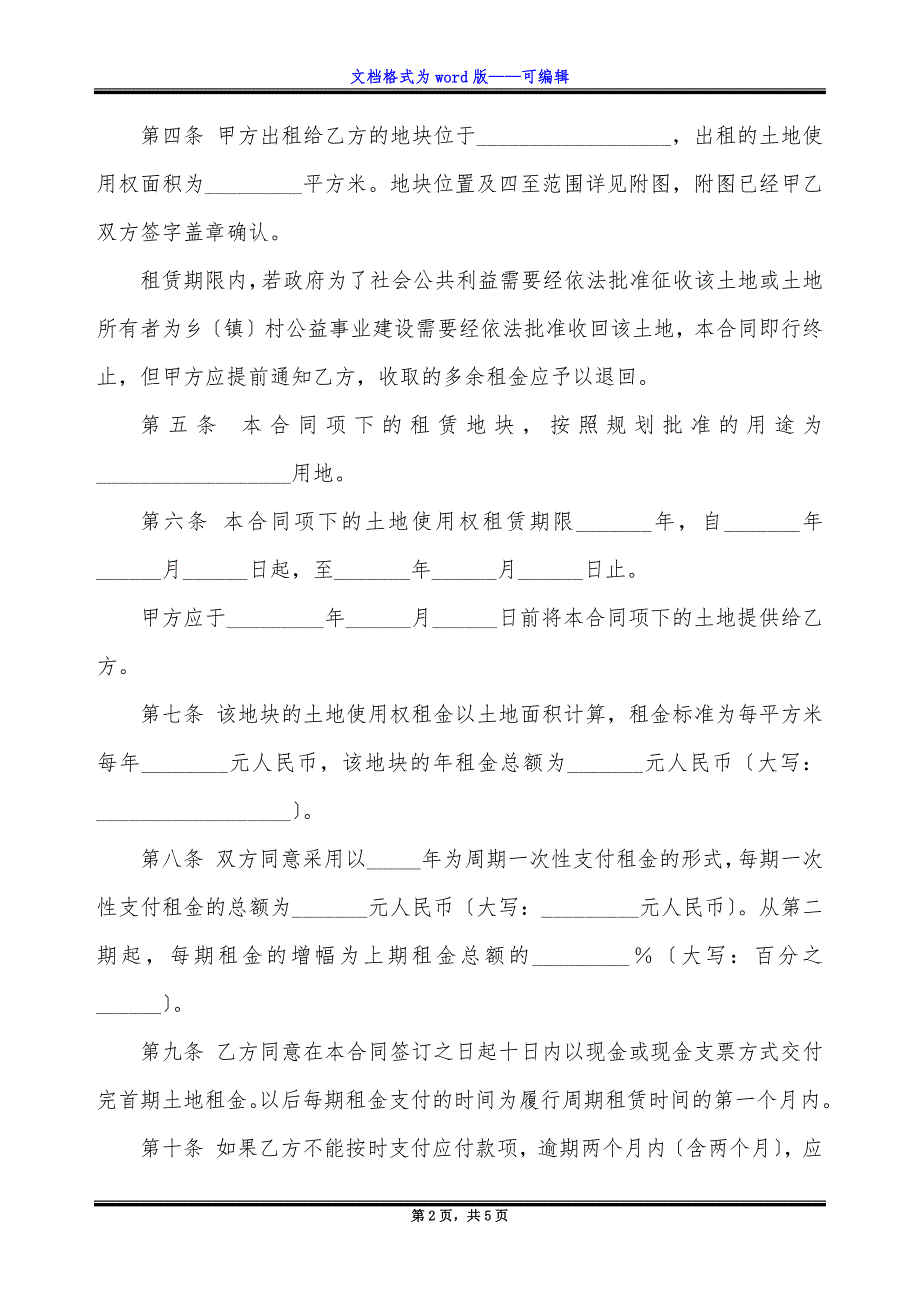 文档格式为 word 版——可编辑
第四条 甲方出租给乙方的地块位于__________________，出租的土地使
用权面积为_________平方米。地块位置及四至范围详见附图，附图已经甲乙
双方签字盖章确认。
租赁期限内，若政府为了社会公共利益需要经依法批准征收该土地或土地
所有者为乡〔镇〕村公益事业建设需要经依法批准收回该土地，本合同即行终
止，但甲方应提前通知乙方，收取的多余租金应予以退回。
第五条 本合同项下的租赁地块，按照规划批准的用途为
__________________用地。
第六条 本合同项下的土地使用权租赁期限_______年，自_______年
______月______日起，至_______年______月______日止。
甲方应于_________年______月______日前将本合同项下的土地提供给乙
方。
第七条 该地块的土地使用权租金以土地面积计算，租金标准为每平方米
每年________元人民币，该地块的年租金总额为_______元人民币〔大写：
__________________〕。
第八条 双方同意采用以_____年为周期一次性支付租金的形式，每期一次
性支付租金的总额为_______元人民币〔大写：_________元人民币〕。从第二
期起，每期租金的增幅为上期租金总额的_________%〔大写：百分之
______〕。
第九条 乙方同意在本合同签订之日起十日内以现金或现金支票方式交付
完首期土地租金。以后每期租金支付的时间为履行周期租赁时间的第一个月内。
第十条 如果乙方不能按时支付应付款项，逾期两个月内〔含两个月〕，应
第 2 页，共 5 页